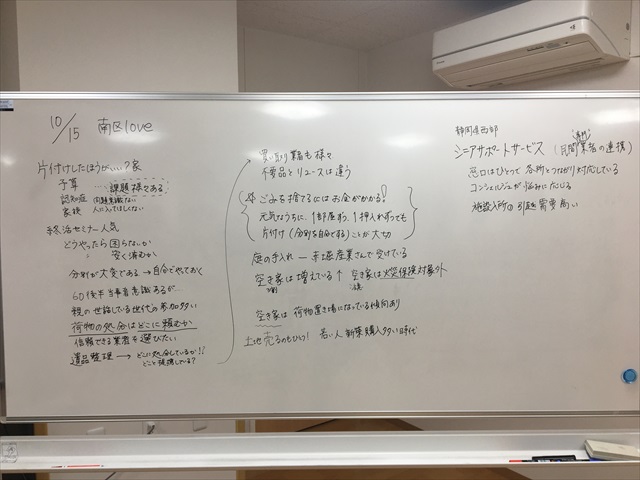 10/15 南区love
片付けしたほうがいい?家
予算 … 課題様々である
認知症 問題意識ない
家族 人に入ってほしくない
終活セミナー人気
どうやったら困らないか
〃 安く済むか
分別が大変である→自分でやっておく
60後半当事者意識あるが…
親の世話している世代の参加多い
荷物の処分はどこに頼むか
信頼できる業者を選びたい
遺品整理 → どこに処分しているか!!
どこと提携している?
買い取り業者も様々
不要品とリユースは違う
ごみを捨てるにはお金がかかる!
元気なうちに、1部屋ずつ、1押入れずつでも
片付け(分別を自分でする)ことが大切
庭の手入れ ―
産業さんで受けている
空き家は増えている↑ 空き家は火災保険対象外
空き家は 荷物置き場になっている傾向あり
土地売るのもひとつ! 若い人 新築購入多い時代
静岡県西部
シニアサポートサービス (民間業者の連携)
専門
窓口はひとつで 各所とつながり対応している
コンシェルジュが悩みに応じる
施設入所の引越 需要高い